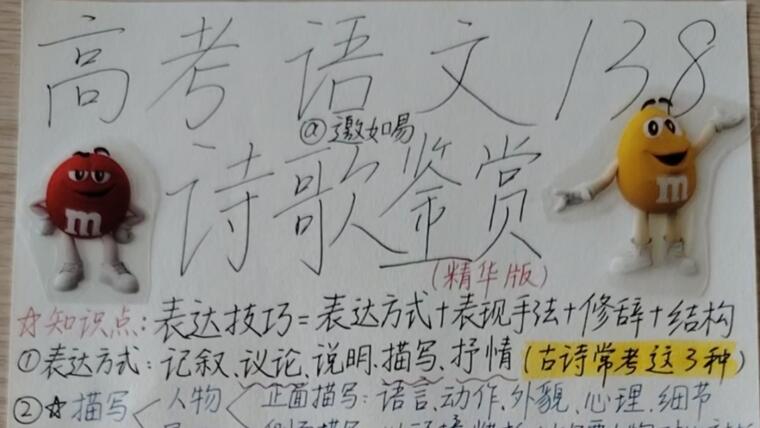 高考语文138
@邀如易
诗歌鉴赏
(精华版)
m
m
☆知识点:表达技巧=表达方式+表现手法+修辞+结构
①表达方式:记叙、议论、说明、描写、抒情(古诗常考这3种)
②☆描写 人物 正面描写:语言、动作、外貌、心理、细节